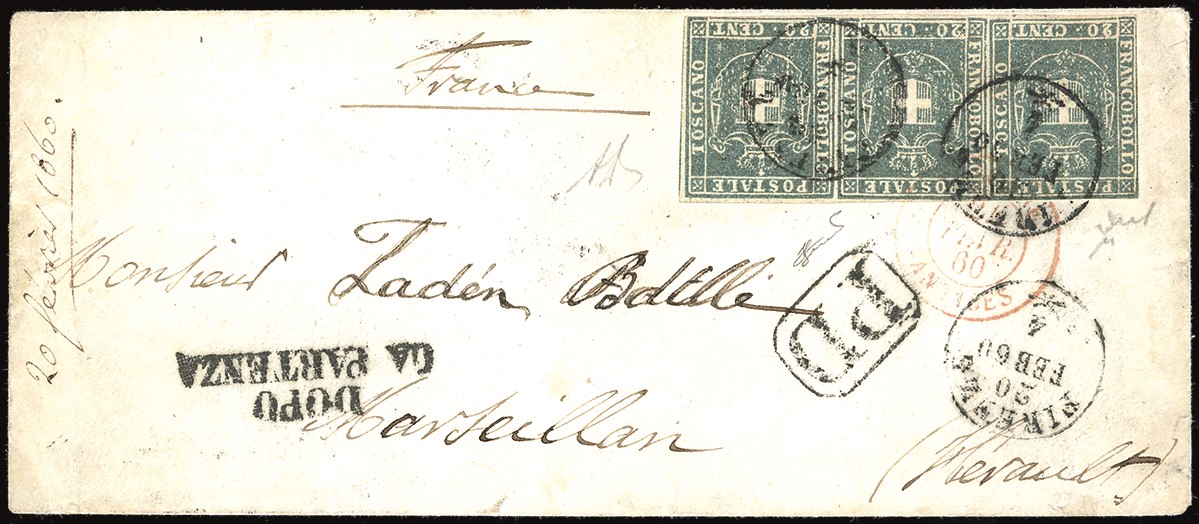 France
20 février 1860.
Monsieur
Marseillan
(Hérault)
20 CENT
20 CENT
20 CENT
FRANCOBOLLO
TOSCANO
POSTALE
FRANCOBOLLO
TOSCANO
POSTALE
FRANCOBOLLO
TOSCANO
POSTALE
60
ANTIBES
PD
FIRENZE
20
FEB 60
4
DOPO
LA PARTENZA